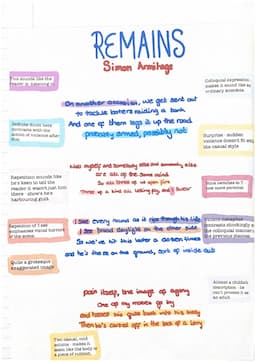 REMAINS
Simon Armitage
On another occasion, we get sent out
to tackle looters raiding a bank
And one of them legs it up the road
probably armed, possibly not
Well myself and somebody else and somebody else
are all of the same mind
So all three of us open fire
Three of a kind all letting fly, and I swear
I see every round as it rips through his life
I see broad daylight on the other side
So we've hit this looter a dozen times
and he's there on the ground, sort of inside out
pain itself, the image of agony
One of my mates goes by
and tosses his guts back into his body
Then he's carted off in the back of a lorry
This sounds like the
reader is listening in
Colloquial expression -
makes it sound like an
ordinary anecdote
contrasts with the
action of violence after
this
Surprise - sudden
violence doesn't fit
the casual style
Repetition sounds like
he's keen to tell the
reader it wasn't just him
there - shows he's
harbouring guilt
Repetition of I see
emphasises visual horrors
of the scene
contrasts shockingly to
the colloquial
the previous stanza
Quite a grotesque
exaggerated image
Almost a childish
description - he can't
process it as an
adult
Two casual, cold
actions - makes it
seem like the body is
a piece of rubbish